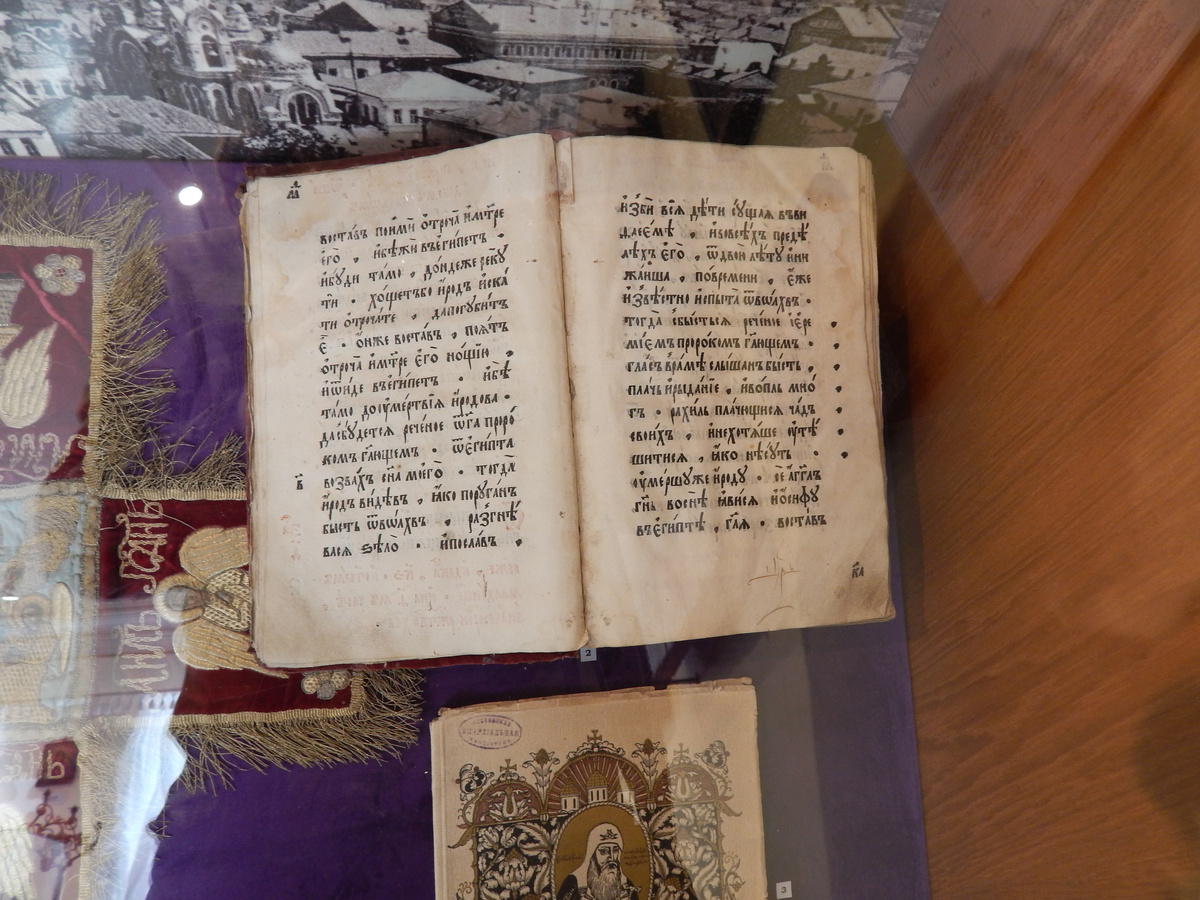 воста́въ пои́ми ѻ҆троча̀ и҆мт҃ре
є҆гѡ̀ , и҆бѣжѝ въє҆гѵ́петъ ·
и҆бꙋ́ди та́мо , до́ндеже рекꙋ̀
тѝ · хо́щетъбо и҆́родъ и҆ска́
ти ѻ҆троча́те , дапогꙋби́тъ
є҆̀ · ѻ҆́нже воста́въ , поѧ́тъ
ѻ҆троча̀ и҆мт҃ре є҆гѡ̀ но́щїю ,
и҆ѿи́де въє҆гѵ́петъ · и҆бѣ̀
та́мо доᲂу҆ме́ртвїѧ и҆́родова ·
дасбꙋ́детсѧ рече́ное ѿгⷭ҇а проро́
комъ гл҃ющемъ · ѿє҆гѵ́пта
возва́хъ сн҃а моего̀ · тогда̀
и҆́родъ ви́дѣвъ , ꙗ҆́ко порꙋ́ганъ
бы́сть ѿвѡлхвъ , разгнѣ́
васѧ ѕѣлѡ̀ · и҆посла́въ ,
к҃
и҆збѝ всѧ̀ дѣ́ти сꙋ́щаѧ въви
ѳлее́мѣ , и҆вовсѣ́хъ предѣ́
лѣхъ є҆гѡ̀ , ѿдвою̀ лѣ́тꙋ и҆ни
жа́йша , повре́мени , є҆́же
и҆звѣ́стно и҆спыта̀ ѿвѡлхвъ ·
тогда̀ сбы́стьсѧ рече́ное і҆ере
мі́емъ проро́комъ гл҃ющемъ ·
гла́съ вра́мѣ слы́шанъ бы́сть ,
пла́чь и҆рыда́нїе , и҆во́пль мно́
гъ · рахи́ль пла́чющисѧ ча́дъ
свои́хъ , и҆нехотѧ́ше ᲂу҆тѣ́
шитисѧ , ꙗ҆́ко нѣ́сꙋть ·
ᲂу҆ме́ршꙋже и҆́родꙋ · сѐ а҆́гг҃лъ
гд҃нь воснѣ̀ ꙗ҆ви́сѧ и҆ѡ́сифꙋ
въє҆гѵ́птѣ , гл҃ѧ · воста́въ
к҃а
2
3